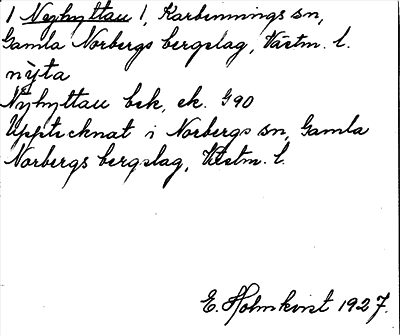 1 Nyhyttan 1, Karbennings sn,
Gamla Norbergs bergslag, Västm. l.
nỳta
Nyhyttan bek, ek. G90
Upptecknat i Norbergs sn, Gamla
Norbergs bergslag, Västm. l.
E. Holmkvist 1927.